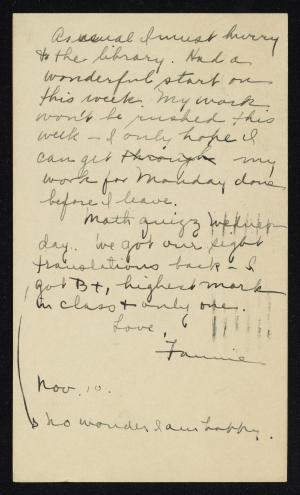 As usual I must hurry
to the library. Had a
wonderful start on
this week. My work
won't be rushed this
week – I only hope I
can get through my
work for Monday done
before I leave.
Math quizz Wednes-
day. We got our sight
translations back – I
got B+, highest mark
in class & only one.
Love,
Fannie
Nov. 10.
No wonder I am happy.